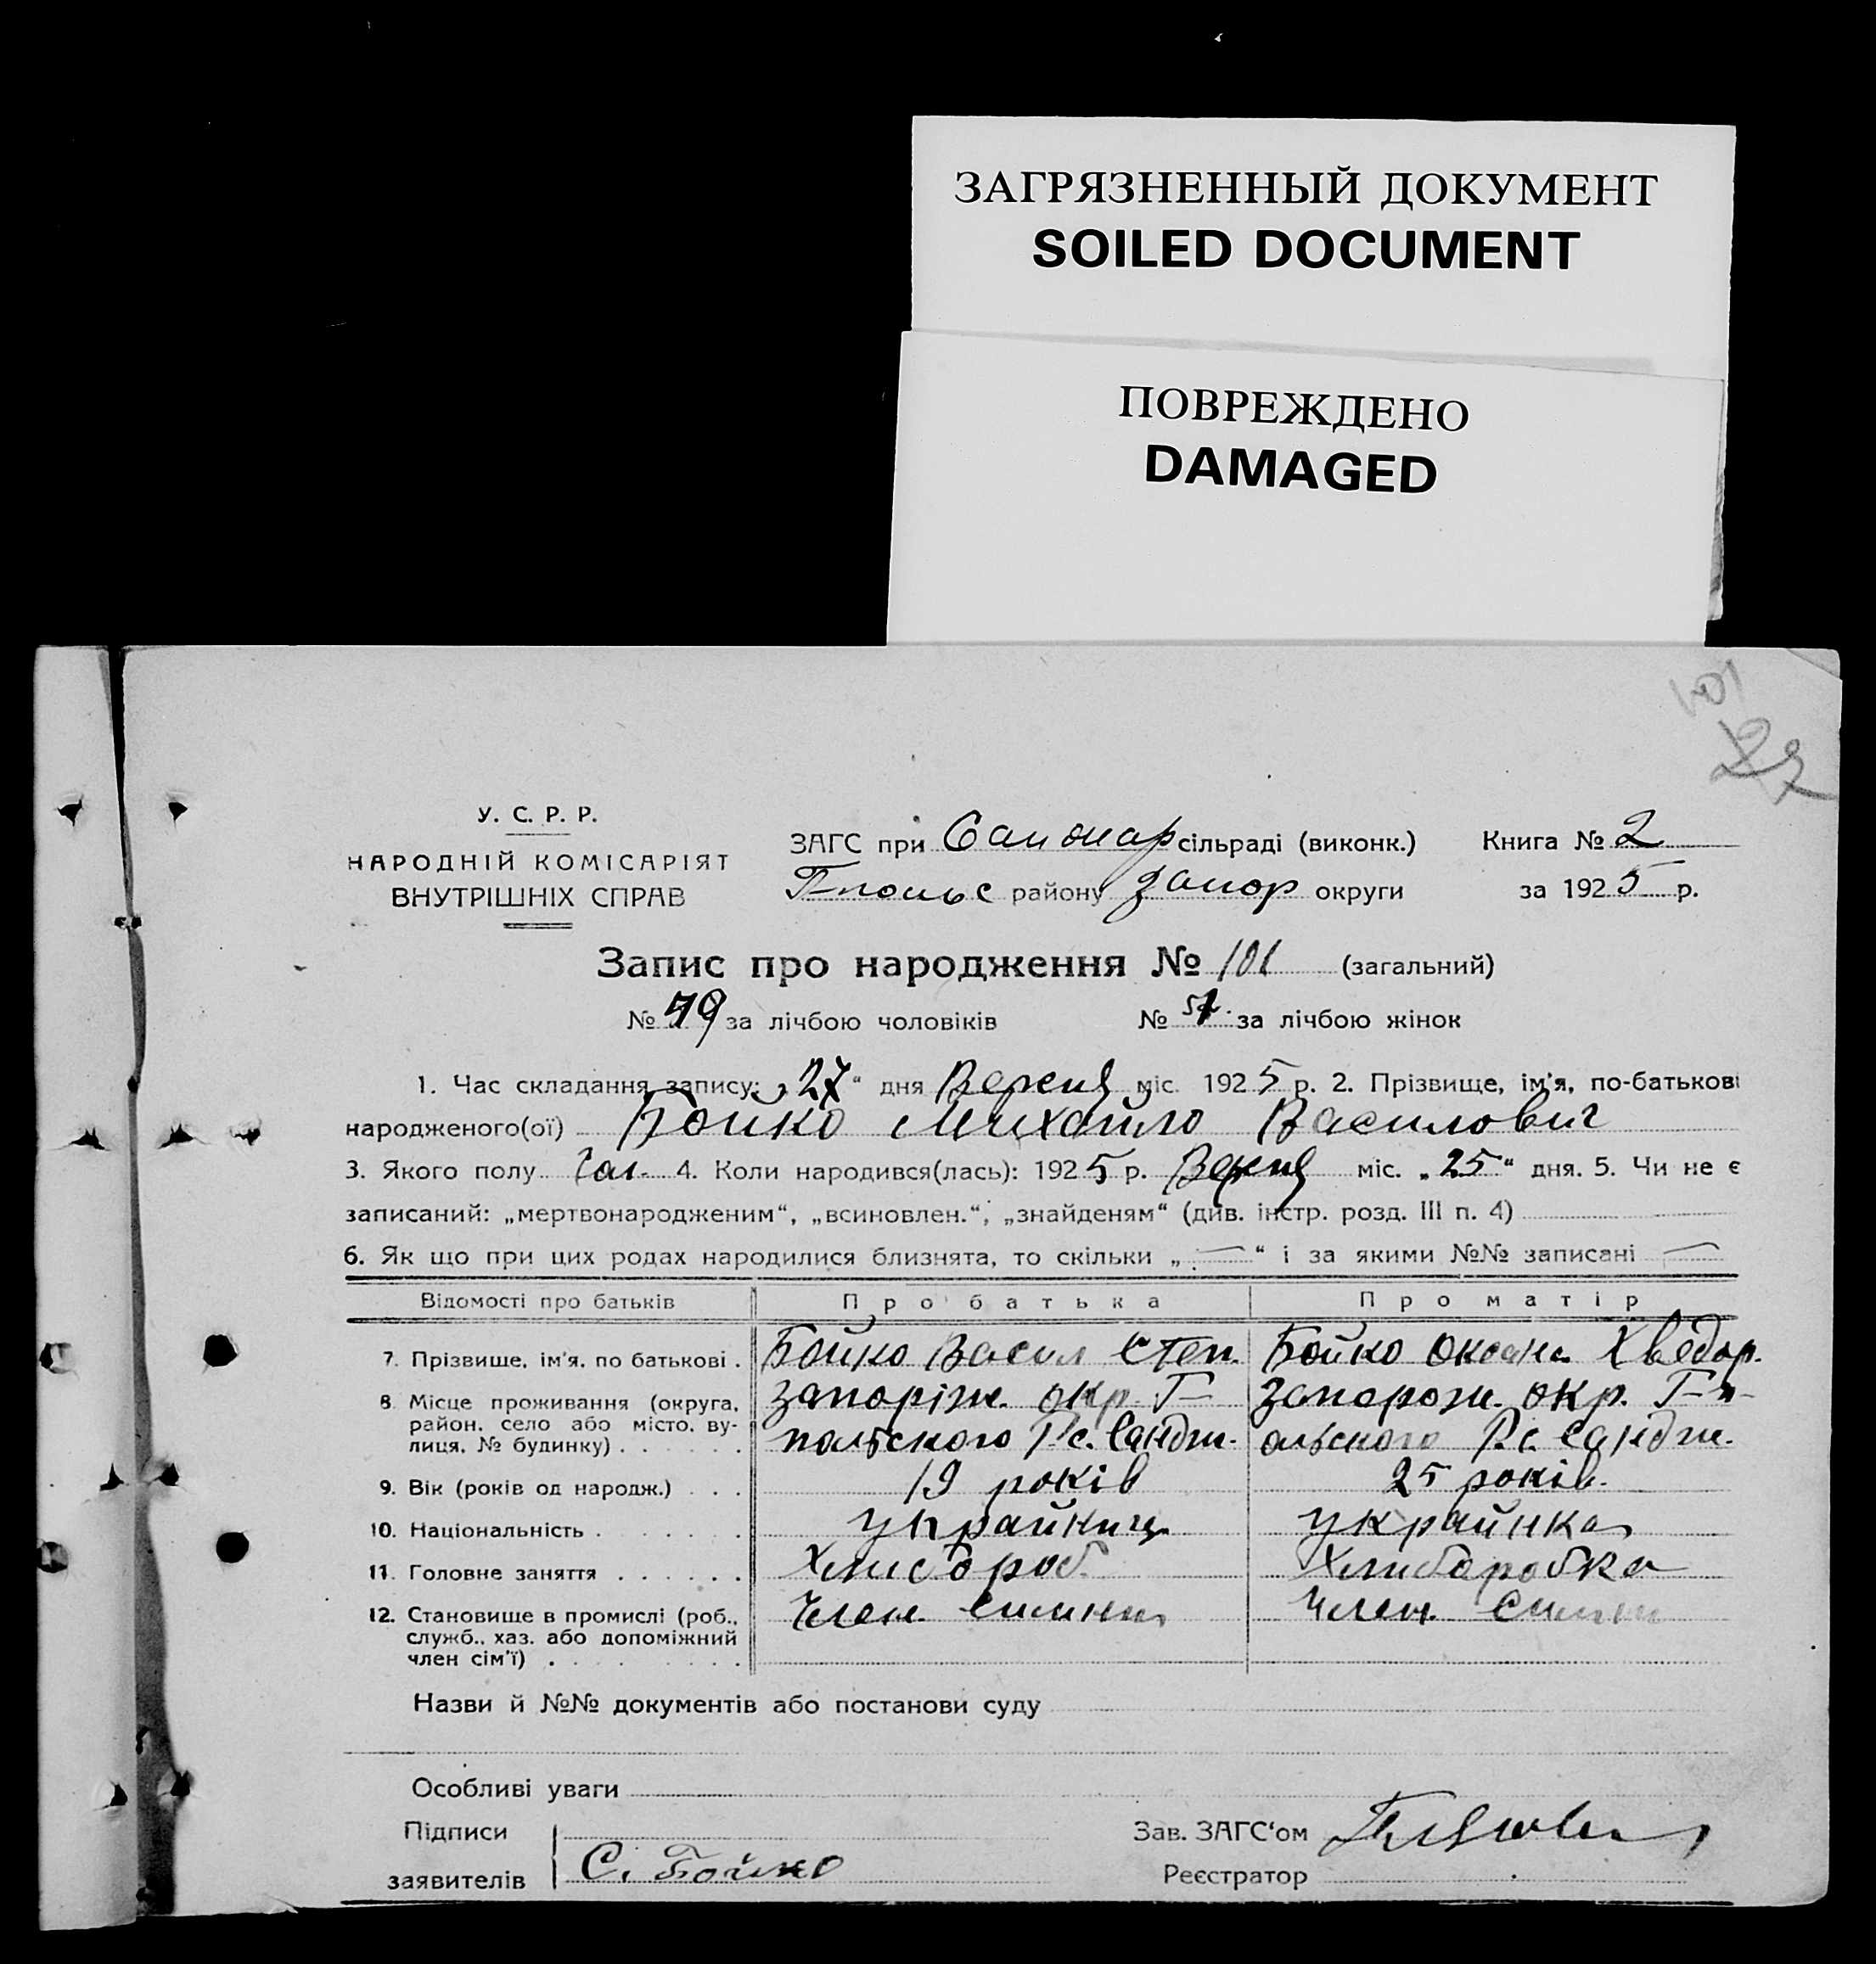 ЗАГРЯЗНЕННЫЙ ДОКУМЕНТ
SOILED DOCUMENT
ПОВРЕЖДЕНО
DAMAGED
101
27
У. С. Р. Р.
НАРОДНІЙ КОМІСАРІЯТ
ВНУТРІШНІХ СПРАВ
ЗАГС при сільраді (виконк.) Книга № 2
Г-польс району Запор округи за 1925 р.
Запис про народження № 101 (загальний)
№ 49 за лічбою чоловіків № за лічбою жінок
1. Час складання запису: „27“ дня міс. 1925 р. 2. Прізвище, ім'я, по-батькові
народженого(ої) Бойко Михайло Василович
3. Якого полу Чол. 4. Коли народився(лась): 1925 р. міс. „25“ дня. 5. Чи не є
записаний: „мертвонародженим“, „всиновлен.“, „знайденям“ (див. інстр. розд. III п. 4)
6. Як що при цих родах народилися близнята, то скільки „—“ і за якими №№ записані —
Відомості про батьків Про батька Про матір
7. Прізвище, ім'я, по батькові . Бойко Васил Степ. Бойко Оксана Хведор.
8. Місце проживання (округа, запоріж. окр. Г- запорож. окр. Г-п-
район, село або місто, ву-
лиця, № будинку) . . . . . . польського Р с. Сандж. ольського Р. с. Сандж.
9. Вік (років од народж.) . . . 19 років 25 років.
10. Національність . . . . . . . українць українка
11. Головне заняття . . . . . . Хлибороб. Хлиборобка
12. Становище в промислі (роб., Член симни Член симни
служб., хаз. або допоміжний
член сім'ї) . . . . . . . . .
Назви й №№ документів або постанови суду
Особливі уваги
Підписи Зав. ЗАГС'ом
заявителів С. Бойко Реєстратор